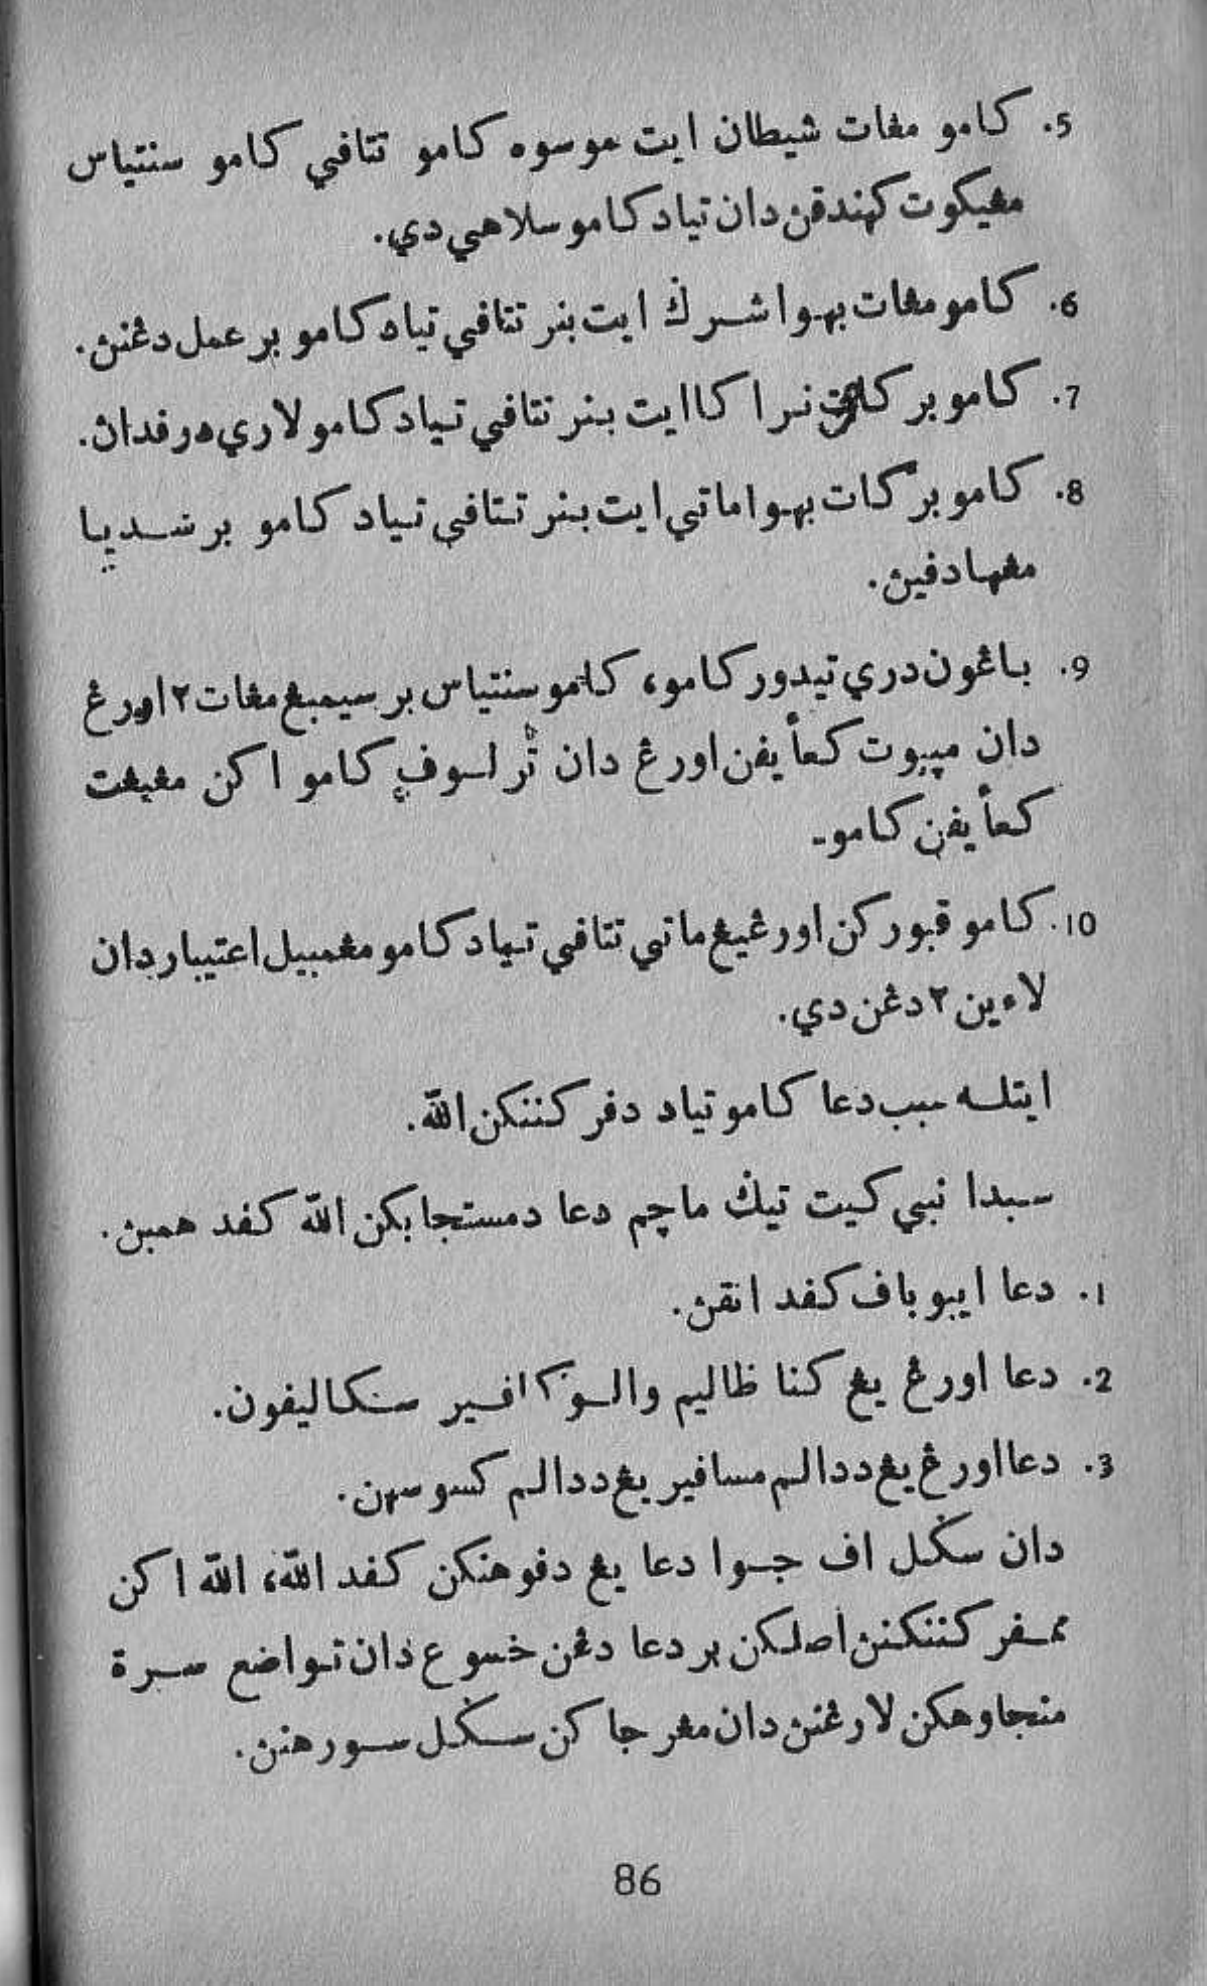 5. كامو مڠات شيطان ايت موسوه كامو تتاڤي كامو سنتياس
مڠيكوت كهندقڽ دان تياد كامو سلاهي دي.
6. كامو مڠات بهوا شرك ايت بنر تتاڤي تياد كامو برعمل دڠنڽ.
7. كامو بركات نراكا ايت بنر تتاڤي تياد كامو لاري درڤداڽ.
8. كامو بركات بهوا ماتي ايت بنر تتاڤي تياد كامو برسديا
مڠهادڤيڽ.
9. باڠون دري تيدور كامو، كامو سنتياس برسيمبڠ مڠات٢ اورڠ
دان مپبوت كعأيڤن اورڠ دان ترلوڤ كامو اكن مڠيڠت
كعأيڤن كامو.
10. كامو قبوركن اورڠ يڠ ماتي تتاڤي تياد كامو مڠمبيل اعتبار دان
لاءين٢ دڠن دي.
ايتله سبب دعا كامو تياد دڤركننكن الله.
سبدا نبي كيت تيݢ ماچم دعا دمستجابكن الله كڤد همبڽ.
1. دعا ايبو باڤ كڤد انقڽ.
2. دعا اورڠ يڠ كنا ظاليم والو كافير سكاليڤون.
3. دعا اورڠ يڠ ددالم مسافير يڠ ددالم كسوسهن.
دان سݢل اڤ جوا دعا يڠ دڤوهنكن كڤد الله، الله اكن
ممڤركننكنڽ اصلكن بردعا دڠن خسوع دان تواضع سرة
منجاوهكن لارڠنڽ دان مڠرجاكن سݢل سورهنڽ.
86